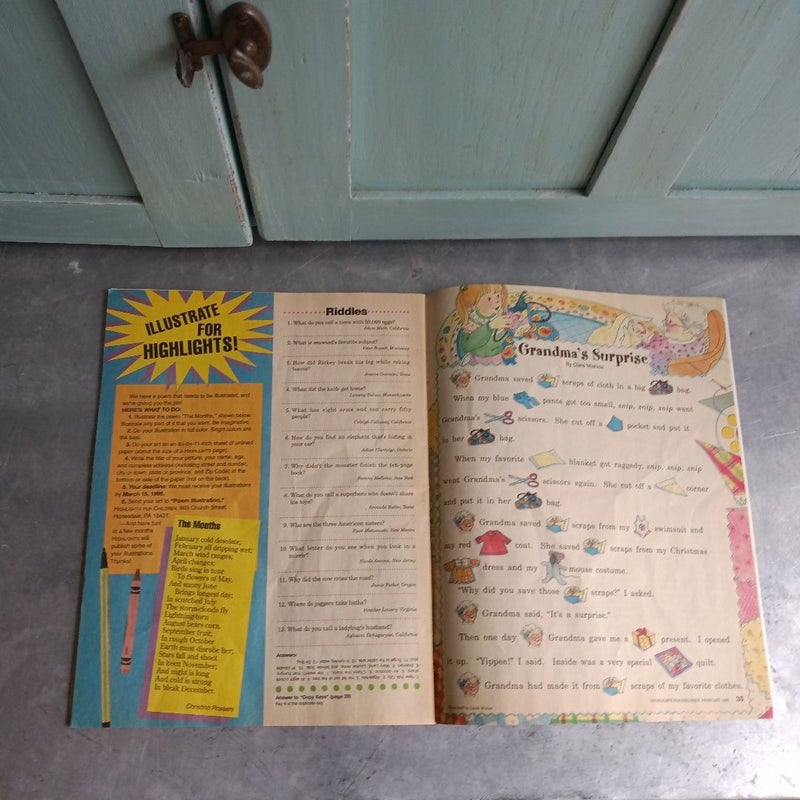 ILLUSTRATE
FOR
HIGHLIGHTS!
We have a poem that needs to be illustrated, and
we're giving you the job!
HERE'S WHAT TO DO:
1. Illustrate the poem "The Months," shown below.
Illustrate any part of it that you want. Be imaginative.
2. Do your illustration in full color. Bright colors are
the best.
3. Do your art on an 8½-by-11-inch sheet of unlined
paper (about the size of a HIGHLIGHTS page).
4. Write the title of your picture, your name, age,
and complete address (including street and number,
city or town, state or province, and Zip Code) at the
bottom or side of the paper (not on the back).
5. Your deadline: We must receive your illustrations
by March 15, 1995.
6. Send your art to "Poem Illustration,"
HIGHLIGHTS FOR CHILDREN, 803 Church Street,
Honesdale, PA 18431.
—And have fun!
In a few months
HIGHLIGHTS will
publish some of
your illustrations.
Thanks!
The Months
January cold desolate;
February all dripping wet;
March wind ranges;
April changes;
Birds sing in tune
To flowers of May,
And sunny June
Brings longest day;
In scorched July
The storm-clouds fly
Lightning-torn
August bears corn,
September fruit;
In rough October
Earth must disrobe her;
Stars fall and shoot
In keen November;
And night is long
And cold is strong
In bleak December.
Christina Rossetti
Riddles
1. What do you call a town with 50,000 eggs?
California
2. What is seaweed's favorite subject?
3. How did Rickey break his leg while raking
leaves?
Texas
4. What did the knife get home?
Massachusetts
5. What has eight arms and can carry fifty
people?
California
6. How do you find an elephant that's hiding in
your car?
Ontario
7. Why didn't the monster finish the ten-page
book?
New York
8. What do you call a superhero who doesn't share
his toys?
Texas
9. Who are the three American sisters?
New Mexico
10. What letter do you see when you look in a
mirror?
New Jersey
11. Why did the cow cross the road?
Oregon
12. Where do joggers take baths?
Virginia
13. What do you call a ladybug's husband?
California
Answers:
Answer to "Copy Keys" (page 29)
Key 4 is the duplicate key.
Grandma's Surprise
By Clare Mishica
Grandma saved scraps of cloth in a big bag.
When my blue pants got too small, snip, snip, snip went
Grandma's scissors. She cut off a pocket and put it
in her bag.
When my favorite blanket got raggedy, snip, snip, snip
went Grandma's scissors again. She cut off a corner
and put it in her bag.
Grandma saved scraps from my swimsuit and
my red coat. She saved scraps from my Christmas
dress and my mouse costume.
"Why did you save those scraps?" I asked.
Grandma said, "It's a surprise."
Then one day Grandma gave me a present. I opened
it up. "Yippee!" I said. Inside was a very special quilt.
Grandma had made it from scraps of my favorite clothes.
35